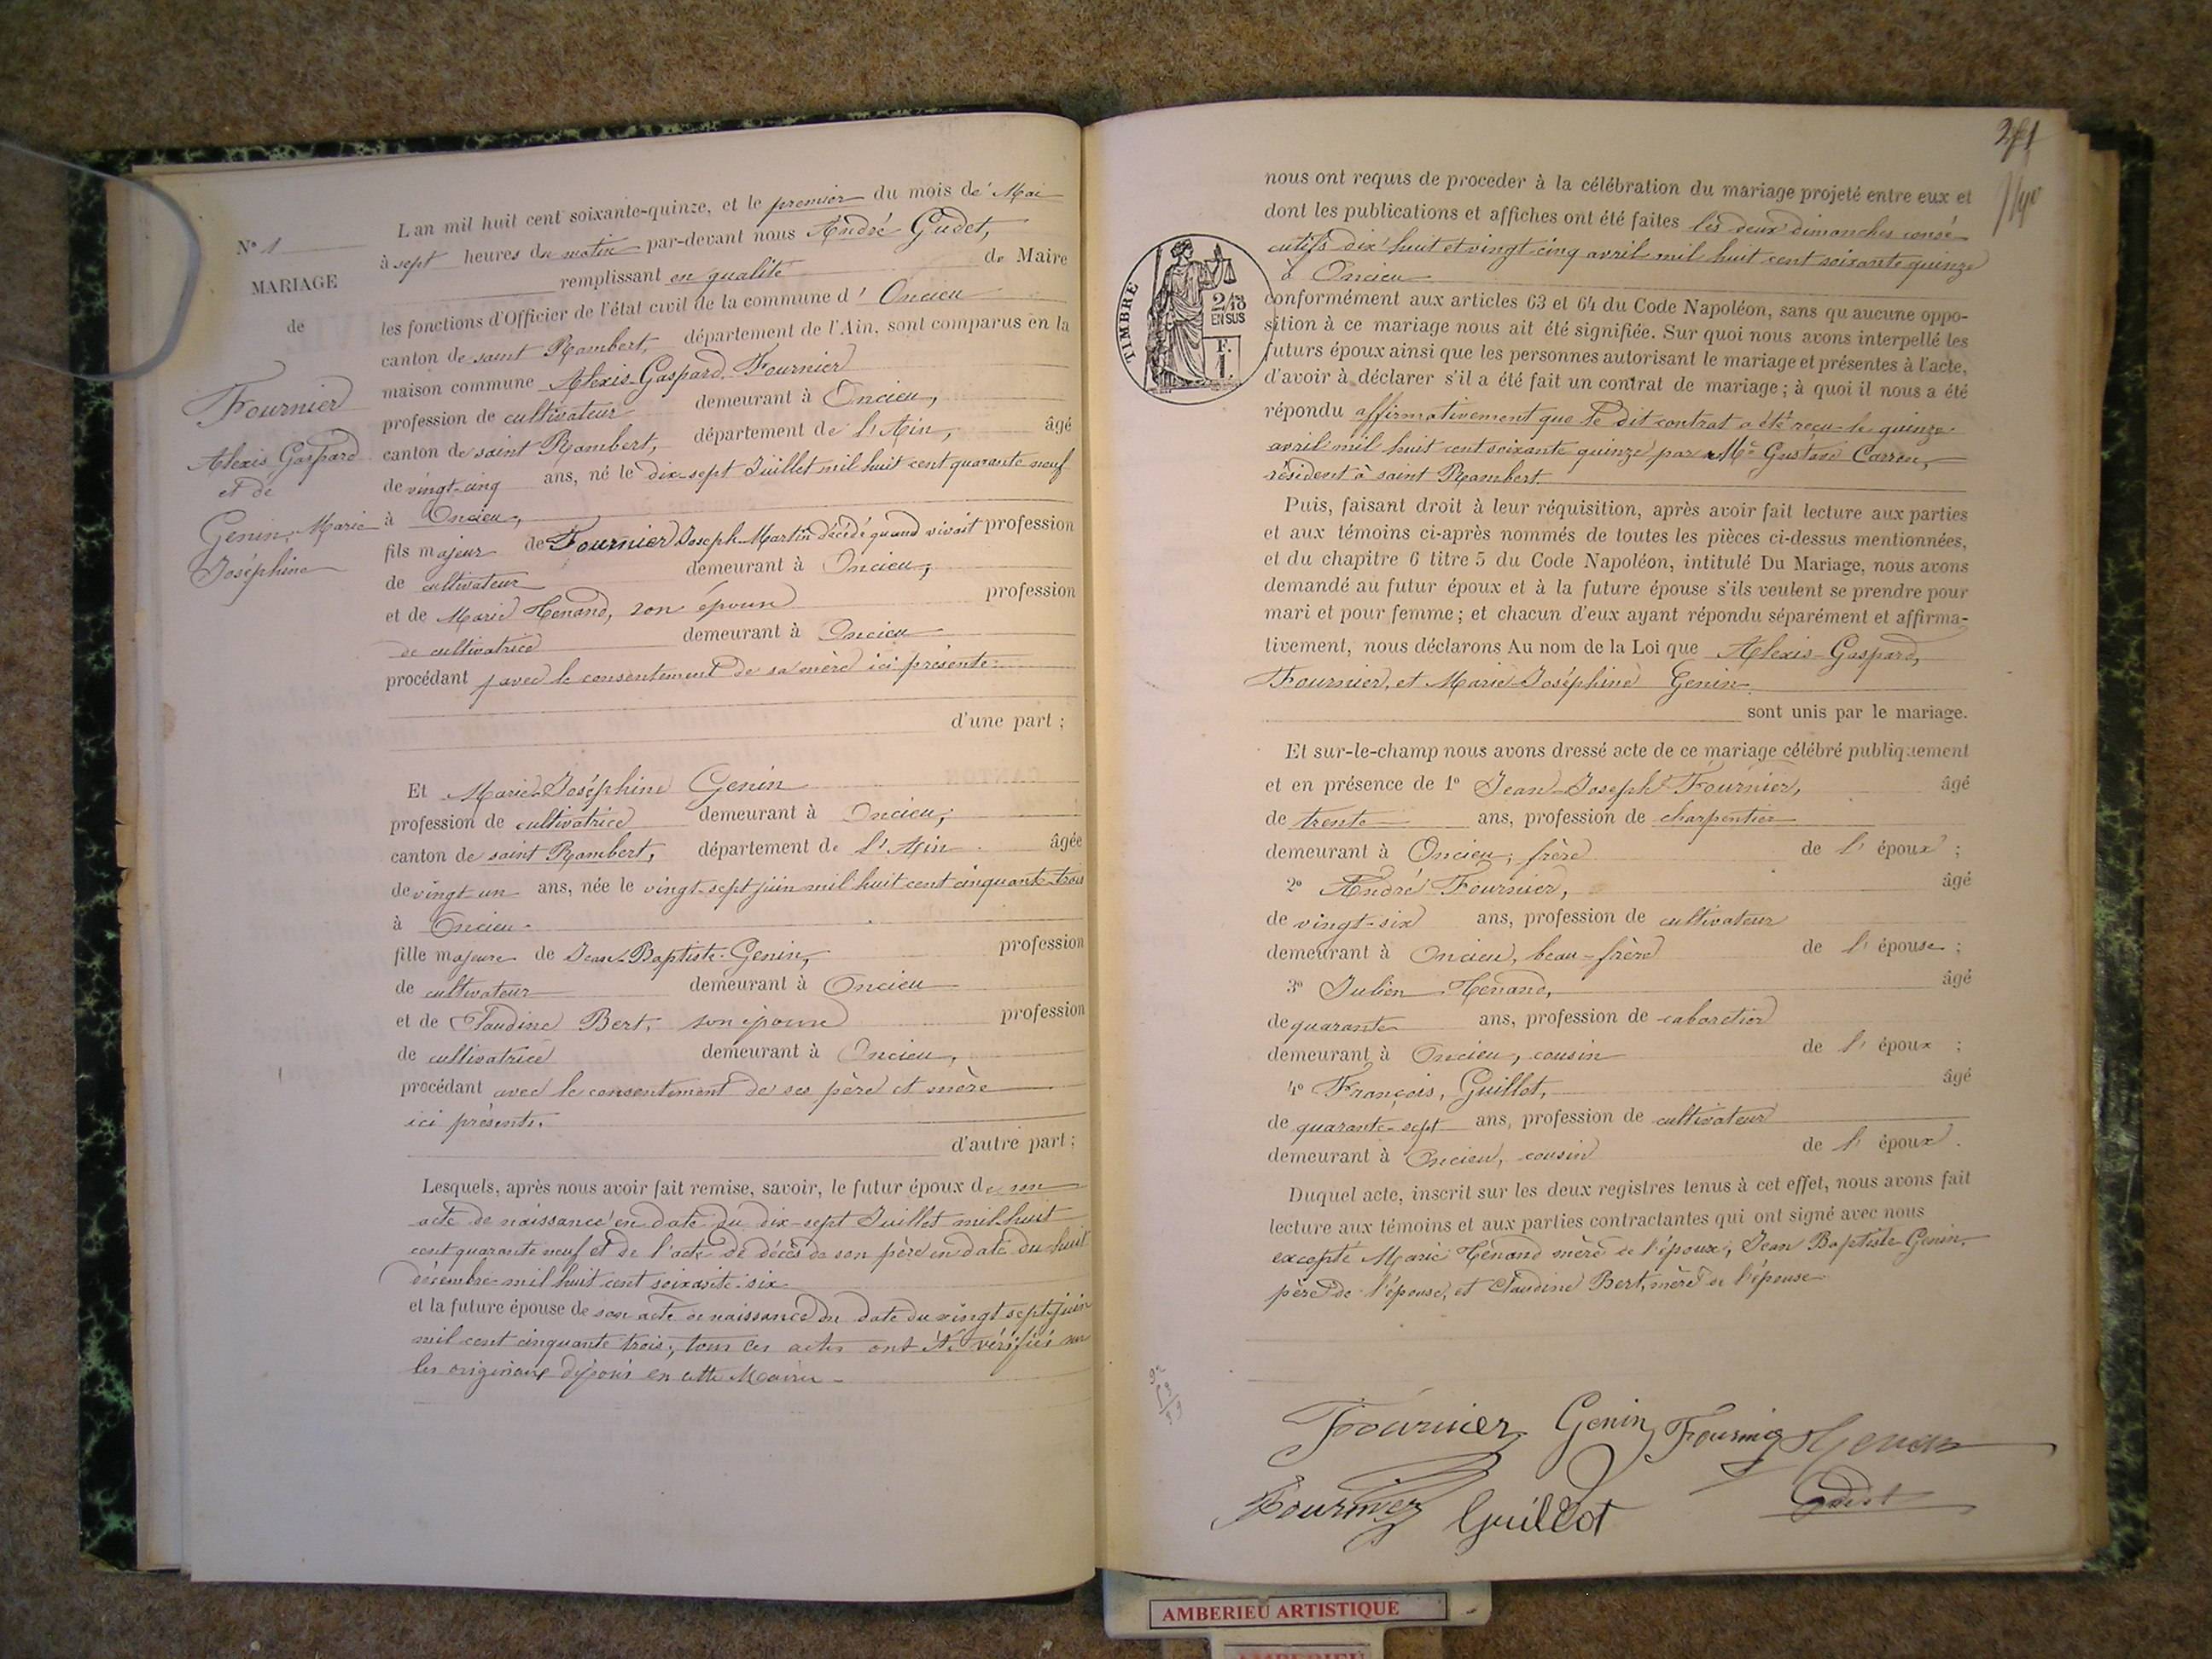 N° 1
MARIAGE
de
Fournier
Alexis Gaspard
et de
Genin, Marie
Joséphine
L an mil huit cent soixante-quinze, et le premier du mois de Mai
à sept heures du matin par-devant nous André Gudet,
remplissant en qualité de Maire
les fonctions d'Officier de l'état civil de la commune d' Oncieu
canton de saint Rambert, département de l'Ain, sont comparus en la
maison commune Alexis-Gaspard Fournier
profession de cultivateur demeurant à Oncieu,
canton de saint Rambert, département de l'Ain, âgé
de vingt-cinq ans, né le dix-sept Juillet mil huit cent quarante neuf
à Oncieu,
fils majeur de Fournier Joseph-Martin décédé quand vivait profession
de cultivateur demeurant à Oncieu,
et de Marie Tenand, son épouse profession
de cultivatrice demeurant à Oncieu
procédant avec le consentement de sa mère ici présente
d'une part ;
Et Marie-Joséphine Genin
profession de cultivatrice demeurant à Oncieu,
canton de saint Rambert, département de l'Ain âgée
de vingt-un ans, née le vingt-sept juin mil huit cent cinquante-trois
à Oncieu
fille majeure de Jean-Baptiste Genin, profession
de cultivateur demeurant à Oncieu
et de Claudine Bert, son épouse profession
de cultivatrice demeurant à Oncieu,
procédant avec le consentement de ses père et mère
ici présents.
d'autre part ;
Lesquels, après nous avoir fait remise, savoir, le futur époux de son
acte de naissance en date du dix-sept Juillet mil huit
cent quarante neuf et de l'acte de décès de son père en date du huit
décembre mil huit cent soixante-six
et la future épouse de son acte de naissance en date du vingt sept juin
mil cent cinquante trois, tous ces actes ont été vérifiés sur
les originaux déposés en cette Mairie
nous ont requis de proceder à la célébration du mariage projeté entre eux et
dont les publications et affiches ont été faites les deux dimanches consé-
cutifs dix huit et vingt-cinq avril mil huit cent soixante quinze
à Oncieu
TIMBRE
2/10
EN SUS
F.
1.
conformément aux articles 63 et 64 du Code Napoléon, sans qu aucune oppo-
sition à ce mariage nous ait été signifiée. Sur quoi nous avons interpellé les
futurs époux ainsi que les personnes autorisant le mariage et présentes à l'acte,
d'avoir à déclarer s'il a été fait un contrat de mariage ; à quoi il nous a été
répondu affirmativement que le dit contrat a été reçu le quinze
avril mil huit cent soixante quinze par Me Gustave
résident à saint Rambert
Puis, faisant droit à leur réquisition, après avoir fait lecture aux parties
et aux témoins ci-après nommés de toutes les pièces ci-dessus mentionnées,
et du chapitre 6 titre 5 du Code Napoléon, intitulé Du Mariage, nous avons
demandé au futur époux et à la future épouse s'ils veulent se prendre pour
mari et pour femme ; et chacun d'eux ayant répondu séparément et affirma-
tivement, nous déclarons Au nom de la Loi que Alexis-Gaspard,
Fournier, et Marie-Joséphine Genin
sont unis par le mariage.
Et sur-le-champ nous avons dressé acte de ce mariage célébré publiquement
et en présence de 1° Jean-Joseph Fournier, âgé
de trente ans, profession de charpentier
demeurant à Oncieu, frère de l' époux ;
2° André Fournier, âgé
de vingt-six ans, profession de cultivateur
demeurant à Oncieu, beau-frère de l' épouse ;
3° Julien Tenand, âgé
de quarante ans, profession de cabaretier
demeurant à Oncieu, cousin de l' époux ;
4° François, Guillot, âgé
de quarante-sept ans, profession de cultivateur
demeurant à Oncieu, cousin de l' époux.
Duquel acte, inscrit sur les deux registres tenus à cet effet, nous avons fait
lecture aux témoins et aux parties contractantes qui ont signé avec nous
excepté Marie Tenand mère de l'époux, Jean Baptiste Genin,
père de l'épouse, et Claudine Bert, mère de l'épouse
Fournier Genin Fournier Tenand
Fournier Guillot Gudet
AMBERIEU ARTISTIQUE
AMBERIEU